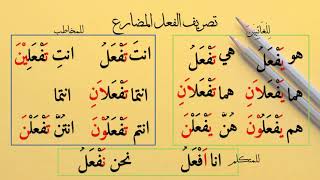 تصريف الفعل المضارع
للغائبين
للمخاطب
هو يَفْعَلُ هي تَفْعَلُ
انتَ تَفْعَلُ انتِ تَفْعَلِيْنَ
هما يَفْعَلَانِ هما تَفْعَلَانِ
انتما تَفْعَلَانِ انتما
هم يَفْعَلُونَ هُنَّ يَفْعَلْنَ
انتم تَفْعَلُونَ انتُنَّ تَفْعَلْنَ
للمتكلم
انا اَفْعَلُ نحن نَفْعَلُ